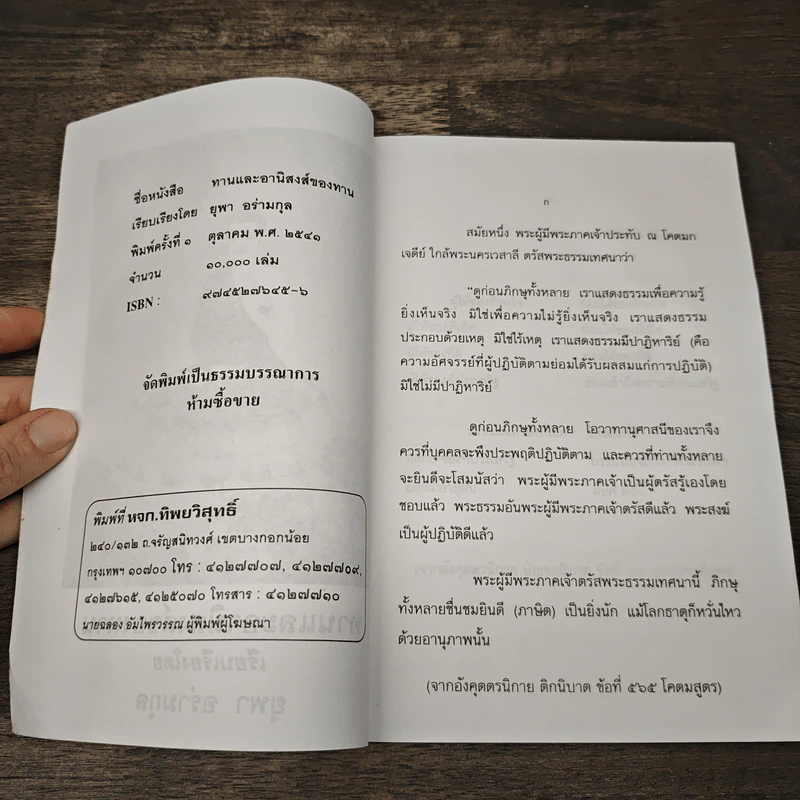 ชื่อหนังสือ ทานและอานิสงส์ของทาน
เรียบเรียงโดย ยุพา อร่ามกุล
พิมพ์ครั้งที่ ๑ ตุลาคม พ.ศ. ๒๕๔๑
จำนวน ๑๐,๐๐๐ เล่ม
ISBN : ๙๗๔๕๒๗๖๔๕-๖
จัดพิมพ์เป็นธรรมบรรณาการ
ห้ามซื้อขาย
พิมพ์ที่ หจก.ทิพยวิสุทธิ์
๒๔๐/๑๓๒ ถ.จรัญสนิทวงศ์ เขตบางกอกน้อย
กรุงเทพฯ ๑๐๗๐๐ โทร : ๔๑๒๗๗๐๗, ๔๑๒๗๗๐๙,
๔๑๒๗๖๑๕, ๔๑๒๕๐๗๐ โทรสาร : ๔๑๒๗๗๑๐
นายฉลอง อัมไพรวรรณ ผู้พิมพ์ผู้โฆษณา
ทานและอานิสงส์ของทาน
เรียบเรียงโดย
ยุพา อร่ามกุล
ก
สมัยหนึ่ง พระผู้มีพระภาคเจ้าประทับ ณ โคตมก
เจดีย์ ใกล้พระนครเวสาลี ตรัสพระธรรมเทศนาว่า
"ดูก่อนภิกษุทั้งหลาย เราแสดงธรรมเพื่อความรู้
ยิ่งเห็นจริง มิใช่เพื่อความไม่รู้ยิ่งเห็นจริง เราแสดงธรรม
ประกอบด้วยเหตุ มิใช่ไร้เหตุ เราแสดงธรรมมีปาฏิหาริย์ (คือ
ความอัศจรรย์ที่ผู้ปฏิบัติตามย่อมได้รับผลสมแก่การปฏิบัติ)
มิใช่ไม่มีปาฏิหาริย์
ดูก่อนภิกษุทั้งหลาย โอวาทานุศาสนีของเราจึง
ควรที่บุคคลจะพึงประพฤติปฏิบัติตาม และควรที่ท่านทั้งหลาย
จะยินดีจะโสมนัสว่า พระผู้มีพระภาคเจ้าเป็นผู้ตรัสรู้เองโดย
ชอบแล้ว พระธรรมอันพระผู้มีพระภาคเจ้าตรัสดีแล้ว พระสงฆ์
เป็นผู้ปฏิบัติดีแล้ว
พระผู้มีพระภาคเจ้าตรัสพระธรรมเทศนานี้ ภิกษุ
ทั้งหลายชื่นชมยินดี (ภาษิต) เป็นยิ่งนัก แม้โลกธาตุก็หวั่นไหว
ด้วยอานุภาพนั้น
(จากอังคุตตรนิกาย ติกนิบาต ข้อที่ ๕๖๕ โคตมสูตร)